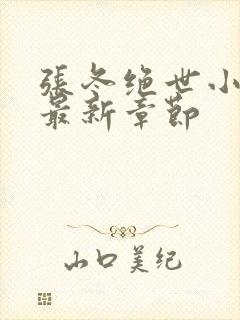 張冬绝世小
最新章节
山口美纪